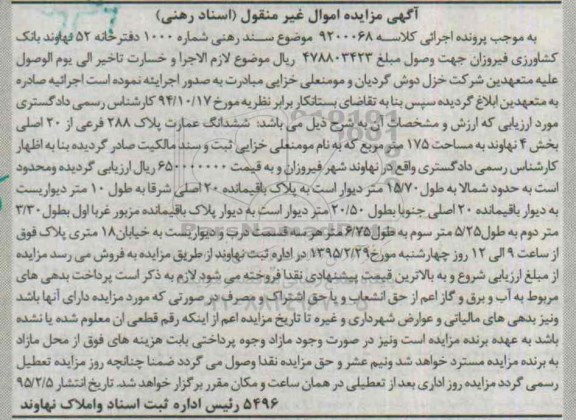 آگهی مزایده اموال غیر منقول (اسناد رهنی)
به موجب پرونده اجرائی کلاسه ۹۲۰۰۰۶۸ موضوع سند رهنی شماره ۱۰۰۰ دفترخانه ۵۲ نهاوند بانک
کشاورزی فیروزان جهت وصول مبلغ ۴۷۸۸۰۳۴۲۳ ریال موضوع لازم الاجرا و خسارت تاخیر الی یوم الوصول
علیه متعهدین شرکت خزل دوش گردیان و مومنعلی خزایی مبادرت به صدور اجرائیه نموده است اجرائیه صادره
به متعهدین ابلاغ گردیده سپس بنا به تقاضای بستانکار برابر نظریه مورخ ۹۴/۱۰/۱۷ کارشناس رسمی دادگستری
مورد ارزیابی که ارزش و مشخصات آن به شرح ذیل می باشد: ششدانگ عمارت پلاک ۲۸۸ فرعی از ۲۰ اصلی
بخش ۴ نهاوند به مساحت ۱۷۵ متر مربع که به نام مومنعلی خزایی ثبت و سند مالکیت صادر گردیده بنا به اظهار
کارشناس رسمی دادگستری واقع در نهاوند شهر فیروزان و به قیمت ۶۵۰۰۰۰۰۰۰ ریال ارزیابی گردیده ومحدود
است به حدود شمالا به طول ۱۵/۷۰ متر دیوار است به پلاک باقیمانده ۲۰ اصلی شرقا به طول ۱۰ متر دیواریست
به دیوار باقیمانده ۲۰ اصلی جنوبا بطول ۲۰/۵۰ متر دیوار است به دیوار پلاک باقیمانده مزبور غربا اول بطول ۳/۳۰
متر دوم به طول ۵/۲۵ متر سوم به طول ۶/۷۵ متر هر سه قسمت درب و دیواریست به خیابان ۱۸ متری پلاک فوق
از ساعت ۹ الی ۱۲ روز چهارشنبه مورخ ۱۳۹۵/۲/۲۹ در اداره ثبت نهاوند از طریق مزایده به فروش می رسد مزایده
از مبلغ ارزیابی شروع و به بالاترین قیمت پیشنهادی نقدا فروخته می شود لازم به ذکر است پرداخت بدهی های
مربوط به آب و برق و گاز اعم از حق انشعاب و یا حق اشتراک و مصرف در صورتی که مورد مزایده دارای آنها باشد
ونیز بدهی های مالیاتی و عوارض شهرداری و غیره تا تاریخ مزایده اعم از اینکه رقم قطعی ان معلوم شده یا نشده
باشد به عهده برنده مزایده است ونیز در صورت وجود مازاد وجوه پرداختی بابت هزینه های فوق از محل مازاد
به برنده مزایده مسترد خواهد شد ونیم عشر و حق مزایده نقدا وصول می گردد ضمنا چنانچه روز مزایده تعطیل
رسمی گردد مزایده روز اداری بعد از تعطیلی در همان ساعت و مکان مقرر برگزار خواهد شد. تاریخ انتشار ۹۵/۲/۵
۵۴۹۶ رئیس اداره ثبت اسناد واملاک نهاوند